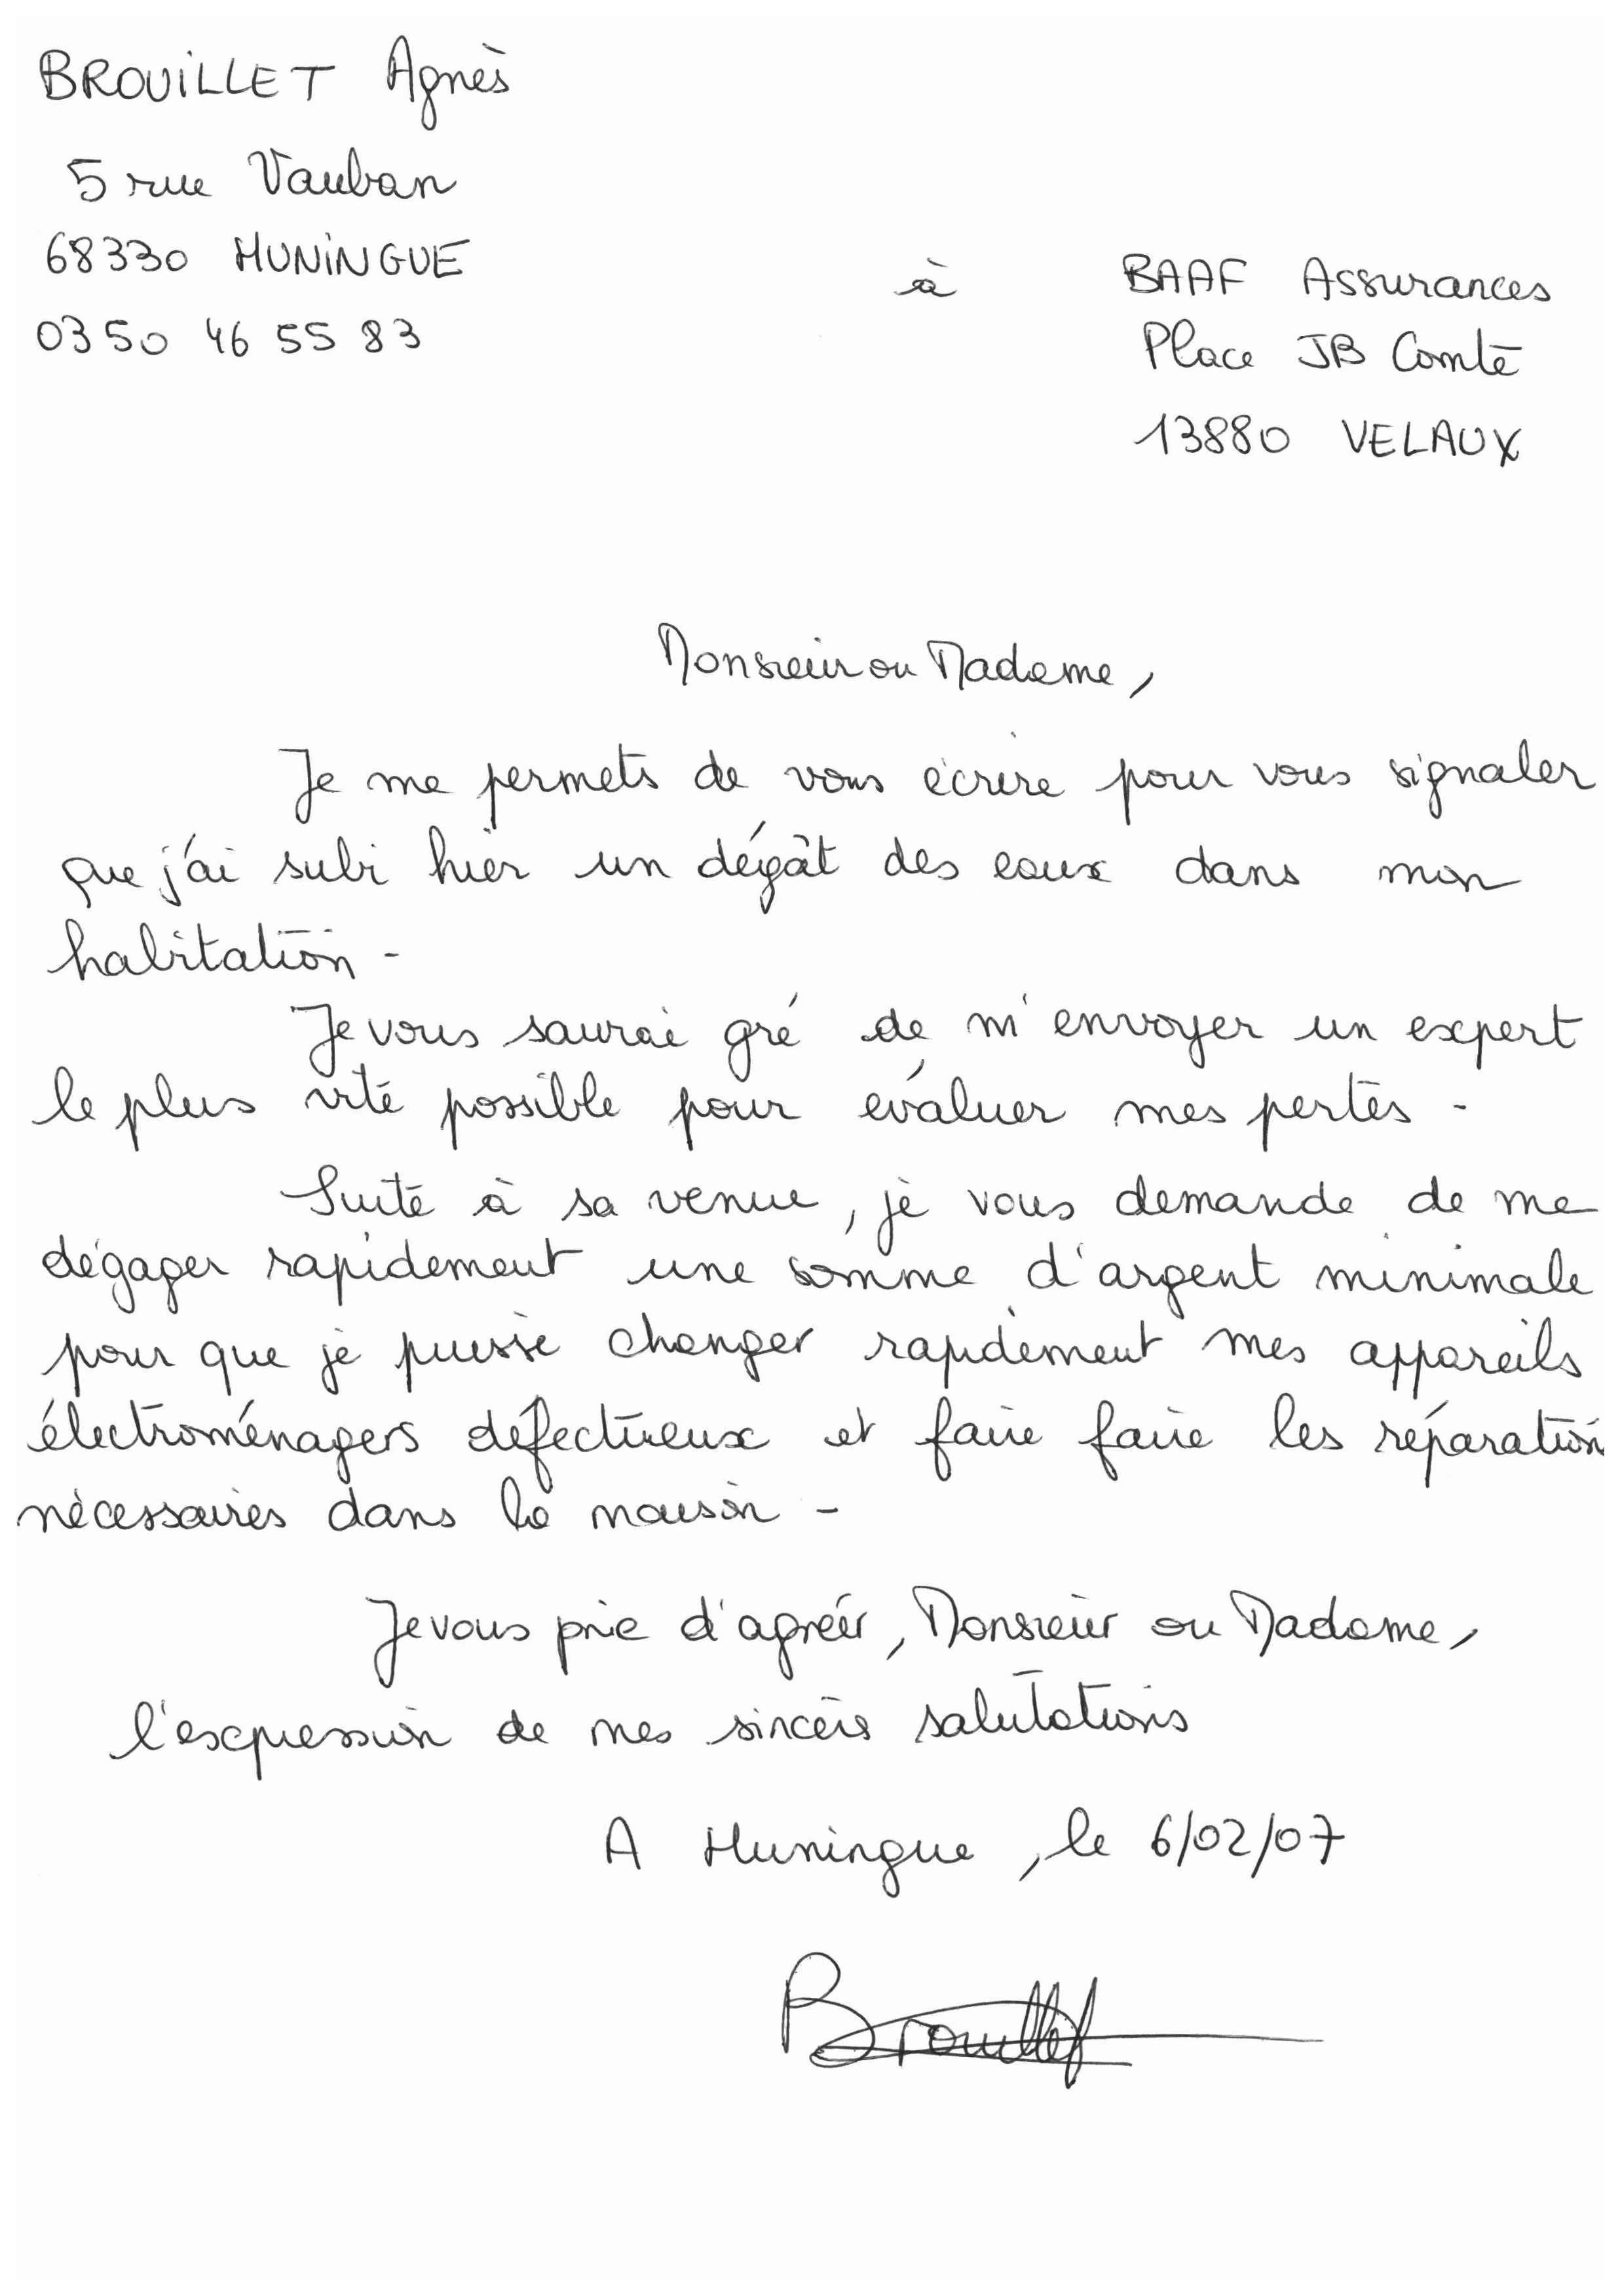 BROUILLET Agnès
5 rue Vauban
68330 HUNINGUE
03 50 46 55 83
à
BAAF Assurances
Place JB Comte
13880 VELAUX
Monsieur ou Madame,
Je me permets de vous écrire pour vous signaler
que j'ai subi hier un dégât des eaux dans mon
habitation -
Je vous saurai gré de m'envoyer un expert
le plus vite possible pour évaluer mes pertes -
Suite à sa venue, je vous demande de me
dégager rapidement une somme d'argent minimale
pour que je puisse changer rapidement mes appareils
électroménagers défectueux et faire faire les réparation
nécessaires dans la maison -
Je vous prie d'agréér, Monsieur ou Madame,
l'expression de mes sincères salutations
A Huningue, le 6/02/07
Brouillet